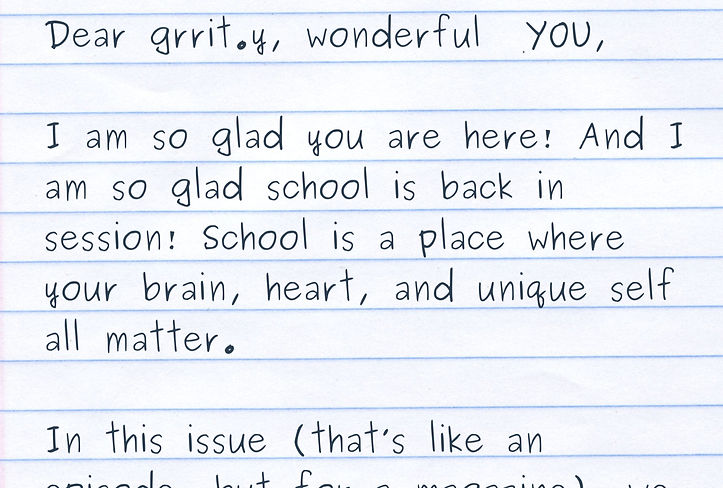 Dear grrit.y, wonderful YOU,
I am so glad you are here! And I
am so glad school is back in
session! School is a place where
your brain, heart, and unique self
all matter.
In this issue (that's like an
episode, but for a magazine), we